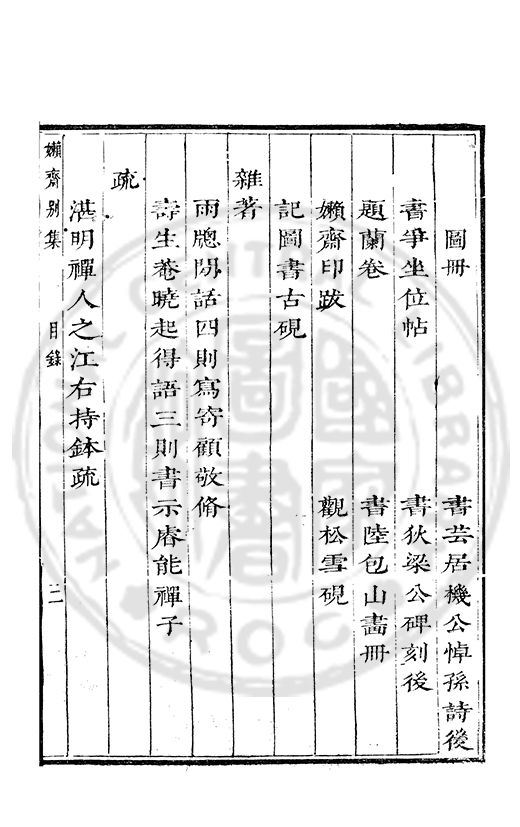 圖冊　書芸居機公悼孫詩後
書爭坐位帖　書狄梁公碑刻後
題蘭卷　書陸包山畵冊
嬾齋印跋　觀松雪硯
記圖書古硯
雜著
雨牕閒話四則寫寄顧敬脩
壽生菴曉起得語三則書示睿能禪子
疏
湛明禪人之江右持鉢疏
嬾齋别集　目錄　三